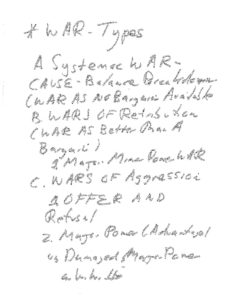 # WAR-Types
A Systemic WAR-
CAUSE-Balance
(WAR AS No Bargain Available
B. WARS OF Retribution
(WAR AS Better Than A
Bargain)
Major-Minor Power WAR
C. WARS OF Aggression
OFFER AND
Refusal
2. Major Power (Advantage)
vs Damaged Major Power